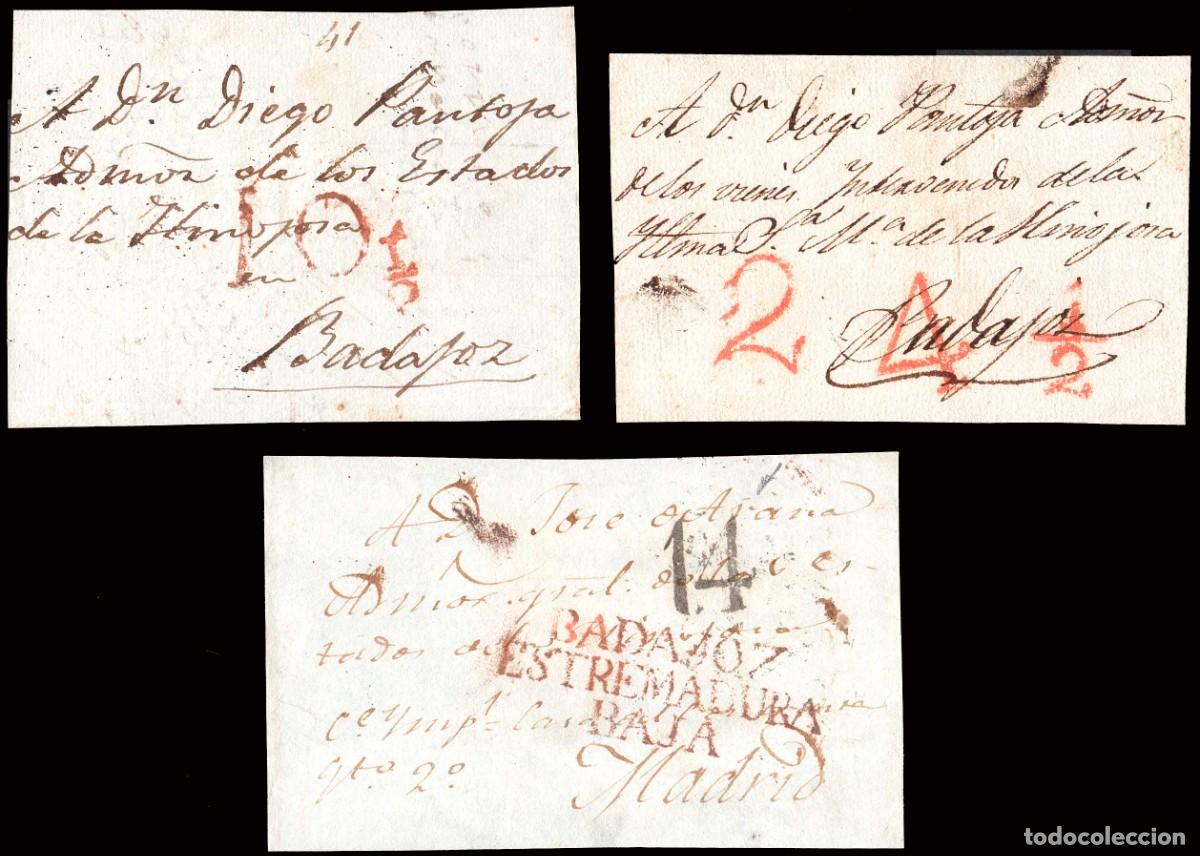 41
A Dn. Diego Pantoja
Admor de los Estados
de la Hinojosa
10 1/2
en
Badajoz
A Dn. Diego Pantoja Admor
de los vienes Intervenidos de la
Yltma Sa. Ma. de la Hinojosa
2 4 1/2
Badajoz
A D. Jose de Arana
14
Admor. gral. de los es-
BADAJOZ
tados de la
ESTREMADURA
BAJA
Ce. Ymp.l
qto. 2o.
Madrid
todocoleccion